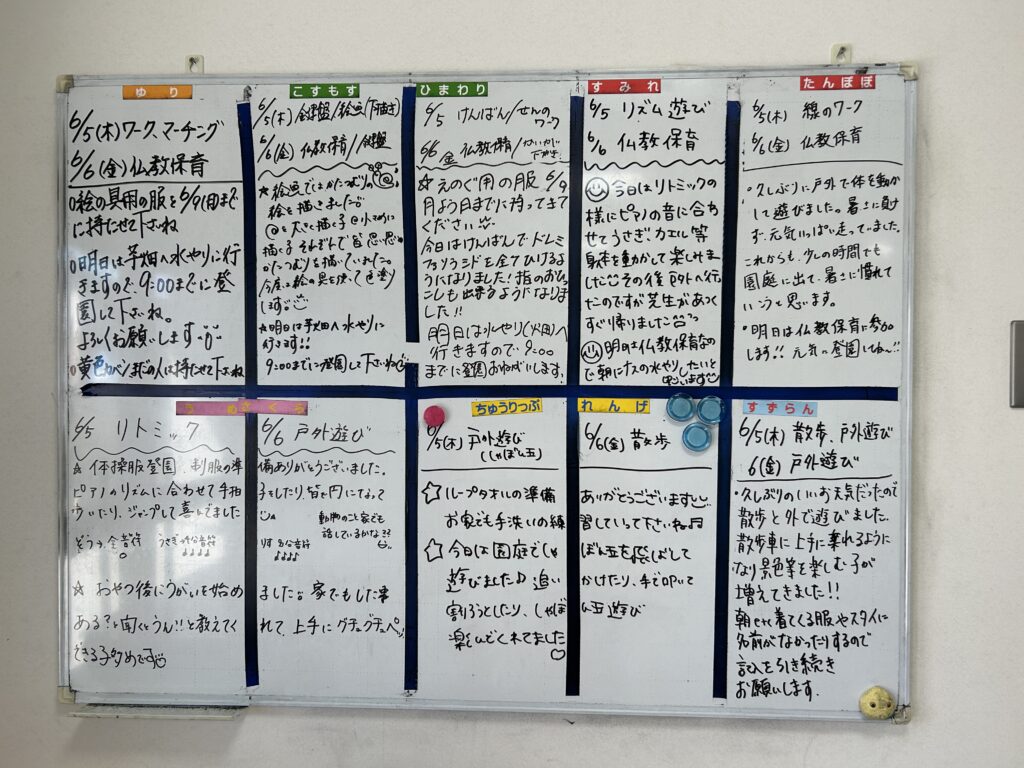 ゆり
6/5(木)ワーク、マーチング
6/6(金)仏教保育
○絵の具用の服を6/9(月)まで
に持たせて下さいね
○明日は芋畑へ水やりに行
きますので、9:00までに登
園して下さいね。
よろしくお願いします
○黄色カバンまだの人は持たせて下さいね
こすもす
6/5(木)鍵盤/絵画(下描き)
6/6(金)仏教保育/鍵盤
☆絵画ではかたつむりの
絵を描きました
@を大きく描く子@小さめに
描く子それぞれで皆思い思い
かたつむりを描いていました。
今度は絵の具を使って色塗り
します。
☆明日は芋畑へ水やりに
行きます!!
9:00までに登園して下さいね
ひまわり
6/5 けんばん/せんの
ワーク
6/6金 仏教保育/かいが
下がき
☆えのぐ用の服 6/9
月よう日までに持ってきて
ください
今日はけんばんでドレミ
ファソラシドを全てひけるよ
うになりました!指のおひっ
こしも出来るようになりまし
た!!
明日は水やり(火田)へ
行きますので9:00
までに登園おねがいします。
すみれ
6/5 リズム遊び
6/6 仏教保育
今日はリトミックの
様にピアノの音に合わ
せてうさぎ、カエル等
身体を動かして楽しみま
したその後戸外へ行っ
たのですが芝生があつく
すぐ帰りました
明日は仏教保育なの
で朝にナスの水やりしたいと
思います
たんぽぽ
6/5(木) 線のワーク
6/6(金) 仏教保育
・久しぶりに戸外で体を動か
して遊びました。暑さに負け
ず、元気いっぱい走っていました。
これからも、少しの時間でも
園庭に出て、暑さに慣れて
いこうと思います。
・明日は仏教保育に参加
します!! 元気に登園してね〜!!
うめ さくら
6/5 リトミック 6/6 戸外遊び
☆ 体操服登園、制服の準備ありがとうございました。
ピアノのリズムに合わせて手拍子をしたり、皆で円になって
歩いたり、ジャンプして喜んでました
動物のこと家でも
話しているかな??
ぞうさん全音符 うさぎ 四分音符 りす 八分音符
☆ おやつ後にうがいを始めました。家でもした事
ある?と聞くとうん!!と教えてくれて、上手にグチュグチュペッ
できる子多めです
ちゅうりっぷ れんげ
6/5(木) 戸外遊び
(しゃぼん玉)
6/6(金) 散歩
☆ループタオルの準備 ありがとうございます
お家でも手洗いの練習していって下さいね♬
☆今日は園庭でしゃぼん玉を飛ばして
遊びました♪ 追いかけたり、手で叩いて
割ろうとしたり、しゃぼん玉遊び
楽しんでくれてました
すずらん
6/5(木) 散歩、戸外遊び
6(金) 戸外遊び
・久しぶりのいいお天気だったので
散歩と外で遊びました。
散歩車に上手に乗れるように
なり景色等を楽しむ子が
増えてきました!!
着てくる服やスタイに
名前がなかったりするので
記入を引き続き
お願いします。